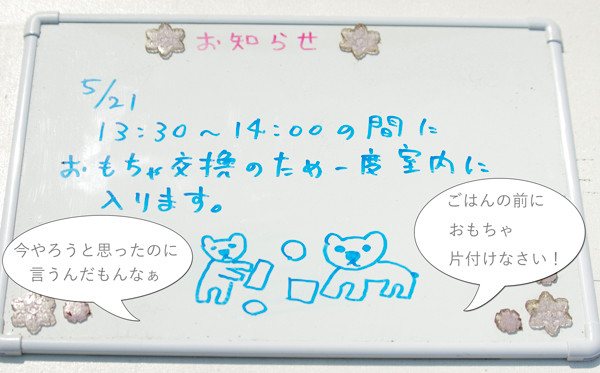 お知らせ
5/21
13:30～14:00の間に
おもちゃ交換のため一度室内に
入ります。
ごはんの前に
おもちゃ
片付けなさい！
今やろうと思ったのに
言うんだもんなぁ